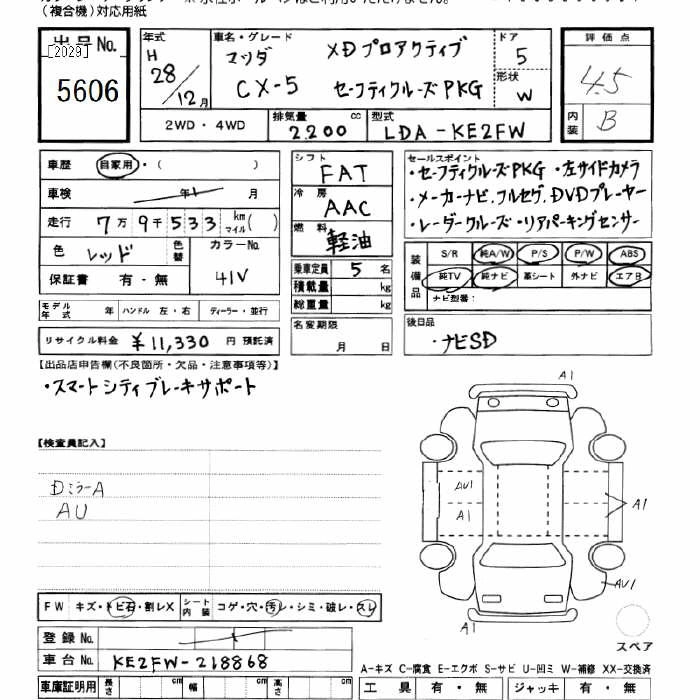 （複合機）対応用紙
出品No.
[2029]
5606
年式
H
28/12月
車名・グレード
マツダ
XDプロアクティブ
CX-5
セーフティクルーズPKG
ドア
5
形状
W
2WD・4WD
排気量
cc
2.200
型式
LDA-KE2FW
評価点
4.5
内装
B
車歴 自家用・( )
車検 年 月
走行 7万9千533 km マイル( )
色 レッド 色替 カラーNo. 41V
保証書 有・無
モデル年式 年 ハンドル 左・右 ディーラー・並行
リサイクル料金 ¥11,330 円 預託済
シフト FAT
冷房 AAC
燃料 軽油
乗車定員 5 名
積載量 kg
総重量 kg
名変期限
月 日
セールスポイント
・セーフティクルーズPKG・左サイドカメラ
・メーカーナビ、フルセグ、DVDプレーヤー
・レーダークルーズ・リアパーキングセンサー
装備品
S/R 純A/W P/S P/W ABS
純TV 純ナビ 革シート 外ナビ エアB
ナビ型番:
後日品
・ナビSD
【出品店申告欄(不良箇所・欠品・注意事項等)】
・スマートシティブレーキサポート
【検査員記入】
DミラーA
AU
A1
AU1
A1
A1
AU1
A1
スペア
FW キズ・トビ石・割レX シート内装 コゲ・穴・汚レ・シミ・破レ・スレ
登録No.
車台No. KE2FW-218868
A-キズ C-腐食 E-エクボ S-サビ U-凹ミ W-補修 XX-交換済
車庫証明用 長さ cm 幅 cm 高さ cm
工具 有・無 ジャッキ 有・無